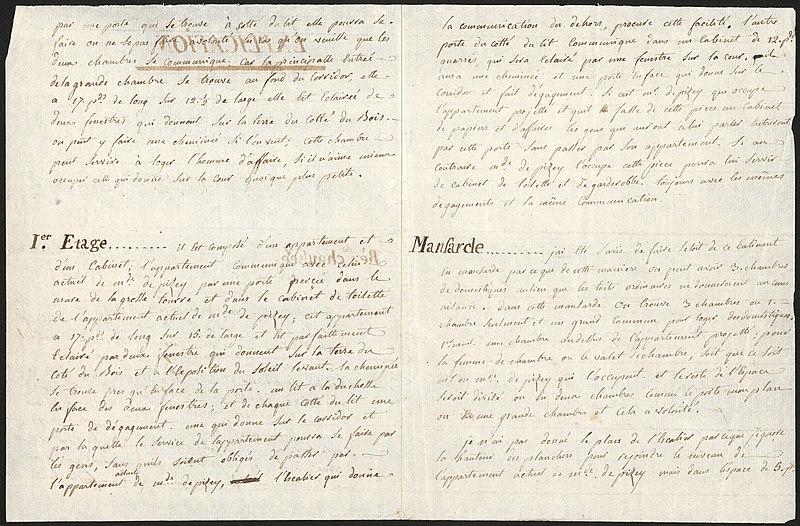 par une porte qui se trouve à coté du lit elle poura se
faire ou ne se pas faire à volonté selon qu'on veuille que les
deux chambres se communique, Car la principalle Entrée
de la grande chambre se trouve au fond du Corridor, elle
a 17 pds de long sur 12.5 de large elle Est Eclairée de
deux fenestres qui donnent sur la terre du Cotté du Bois.
on peut y faire une cheminée si l'on veut; cette chambre
peut servire à loger l'homme d'affaire, si il n'aime mieux
occuper celle qui donne sur la cour quoique plus petite.
Ier Etage .......... il Est composé d'un appartement et
d'un Cabinet; l'appartement communique avec celui
actuel de mde de pizey par une porte percée dans le
mure de la grosse tourre et dans le Cabinet de toilette
de l'appartement actuel de mde de pizey; cet appartement
a 17. pds de long sur 15. de large et Est parfaittement
Eclairé par deux fenestre qui donnent sur la terre du
Coté du Bois et à l'Exposition du Soleil levant. la cheminée
se trouve pres qu'en face de la porte. un lit à la duchesse
En face des deux fenestres; et de chaque Cotté du lit une
porte de dégagement. une qui donne sur le corridor et
par laquelle le service de l'appartement poura se faire par
les gens, sans qu'ils soient obligés de passer par
l'appartement actuel de mde de pizey, l'Escalier qui donne
la communication du dehors, procure cette facilité. l'autre
porte du Cotté du lit Communique dans un Cabinet de 12. pds
quarrés, qui sera Eclairé par une fenestre sur la cour. il
aura une cheminée et une porte En face qui donne sur le
Corridor et fait dégagement. Si cest mr de pizey qui occupe
l'appartement projetté et qu'il fasse de cette piece un Cabinet
de papiers et d'affaires les gens qui auront à lui parler Entreront
par cette porte sans passer par son appartement. Si au
Contraire mde de pizey l'occupe cette piece poura lui servir
de cabinet de toilette et de garderobbe, toujours avec les mêmes
dégagements et la même Communication.
Mansarde .......... jai Eté d'avis de faire le toit de ce batiment
en mansarde parce que de cette maniere on peut avoir 3. chambres
de domestiques au lieu que les toits ordinaires ne donneroient aucune
aisance. dans cette mansarde on trouve 3 chambres ou 1.
chambre seulement et un grand commun pour loger des domestiques,
une chambre au dessus de l'appartement projetté, pour
la femme de chambre ou le valet de chambre, soit que ce soit
mr ou mde de pizey qui l'occupent. et le reste de l'Espace
seroit divisé ou En deux chambres comme le porte mon plan
ou une grande chambre et cela a volonté.
je n'ai pas donné le plan de l'Escalier parce que j'ignore
la hauteur des planchers pour rejoindre le niveau de
l'appartement actuel de mde de pizey mais dans l'espace de 5. pds